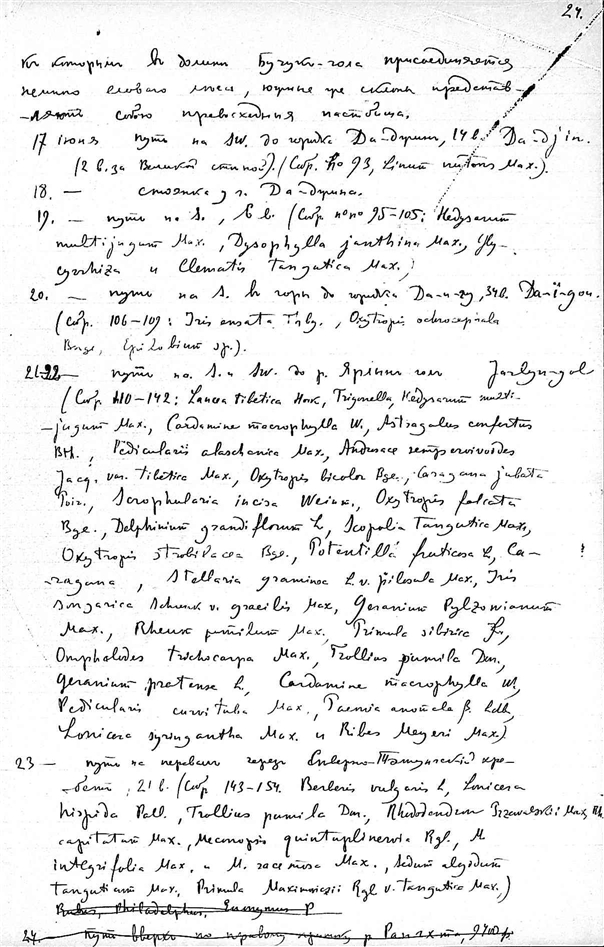 24.
къ которым в долине Бугук-гола присоединяется
немного елового леса, южные же склоны представ-
ляют собою превосходныя пастбища.
17 июня путь на SW. до городка Да-джин, 14 в. Da-djin.
(2 в. за Великой стеной). (Собр. No 93, Linum nutans Max.).
18. — стоянка у г. Да-джина.
19. — путь на S., в. (Собр. NoNo 95-105: Hedysarum
multijugum Max., Dysophylla janthina Max., Gly-
cyrrhiza и Clematis tangutica Max.)
20. — путь на S. в горы до городка Да-и-гу, 34 в. Da-i-gou.
(Собр. 106-109: Iris ensata Thbg., Oxytropis ochrocephala
Bnge, Epilobium sp.).
21-22 — путь на S. и SW. до р. Ярлын гол Jarlyn-gol
(Собр. 110-142: Lancea tibetica Hook, Trigonella, Hedysarum multi-
jugum Max., Cardamine macrophylla W., Astragalus confertus
Bth., Pedicularis alaschanica Max., Androsace sempervivoides
Jacq. var. tibetica Max., Oxytropis bicolor Bge., Caragana jubata
Poir., Scrophularia incisa Weinm., Oxytropis falcata
Bge., Delphinium grandiflorum L., Scopolia tangutica Max.,
Oxytropis strobilacea Bge., Potentilla fruticosa L., Ca-
ragana, Stellaria graminea L. v. pilosula Max., Iris
songarica Schrenk v. gracilis Max., Geranium Pylzowianum
Max., Rheum pumilum Max., Primula sibirica
Omphalodes trichocarpa Max., Trollius pumila Dm.,
Geranium pratense L., Cardamine macrophylla W.,
Pedicularis curvituba Max., Paeonia anomala β. Ldb.,
Lonicera syringantha Max. и Ribes Meyeri Max.)
23 — путь на перевал через Северно-Тэтунгский хре-
бет, 21 в. (Собр 143-154. Berberis vulgaris L., Lonicera
hispida Pall., Trollius pumila Dm., Rhododendron Przewalskii Max., Rh.
capitatum Max., Meconopsis quintuplinervia Rgl., M.
integrifolia Max. и M. racemosa Max., Sedum algidum
tanguticum Max., Primula Maximowiczii Rgl v. tangutica Max.,)
Rubus, Philadelphus, Evonymus
24. — путь вверх по правому притоку р